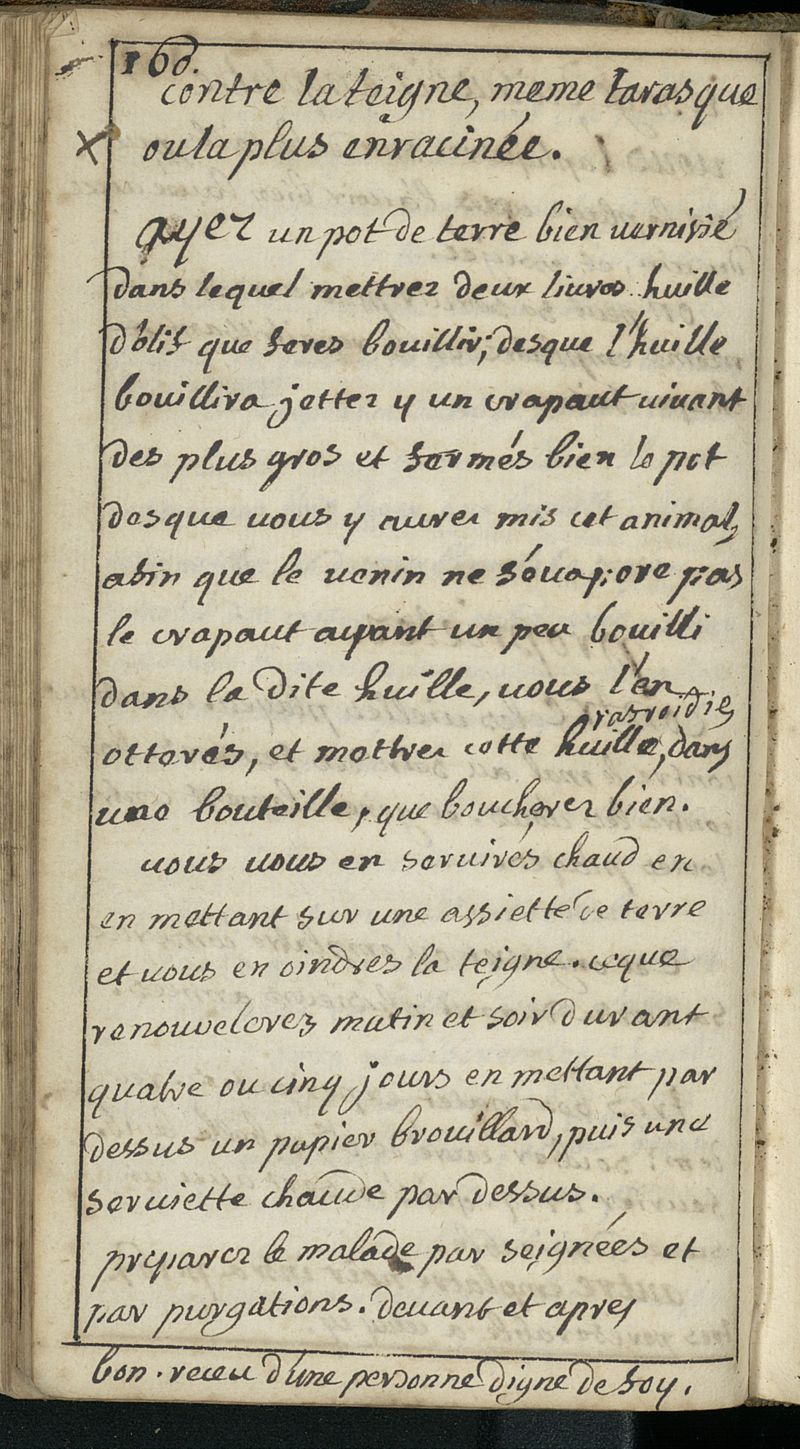 160.
contre la teigne, meme tarasque
× ou la plus enracinée.
ayez un pot de terre bien uernissé
dans lequel mettrez deux liures huille
d'olif que feres bouillir; desque l'huille
bouillira jettez y un crapaut uiuant
des plus gros et fermés bien le pot
desque uous y aurez mis cet animal,
afin que le uenin ne s'éuapore pas
le crapaut ayant un peu bouilli
dans la dite huille, uous l'en
rafroidie
otterés, et mettrez cette huille, dans
une bouteille, que boucherez bien.
uous uous en seruirés chaud en
en mettant sur une assiette de terre
et uous en oindres la teigne. ceque
renouvelerez matin et soir durant
quatre ou cinq jours en mettant par
dessus un papier brouillard, puis une
seruiette chaude par dessus.
preparez le malade par seignées et
par purgations. deuant et apres
bon. receu d'une personne digne de foy.